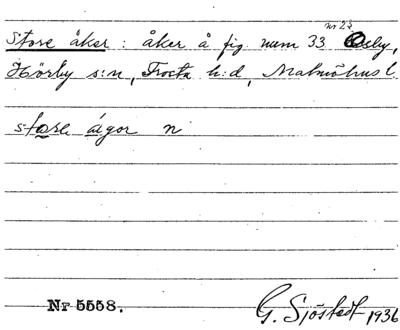 nr 23
Store åker : åker å fig. num 33 Osby,
Hörby s:n, Frosta h:d, Malmöhus l.
store ágor n
Nr 5558.
G. Sjöstedt 1936